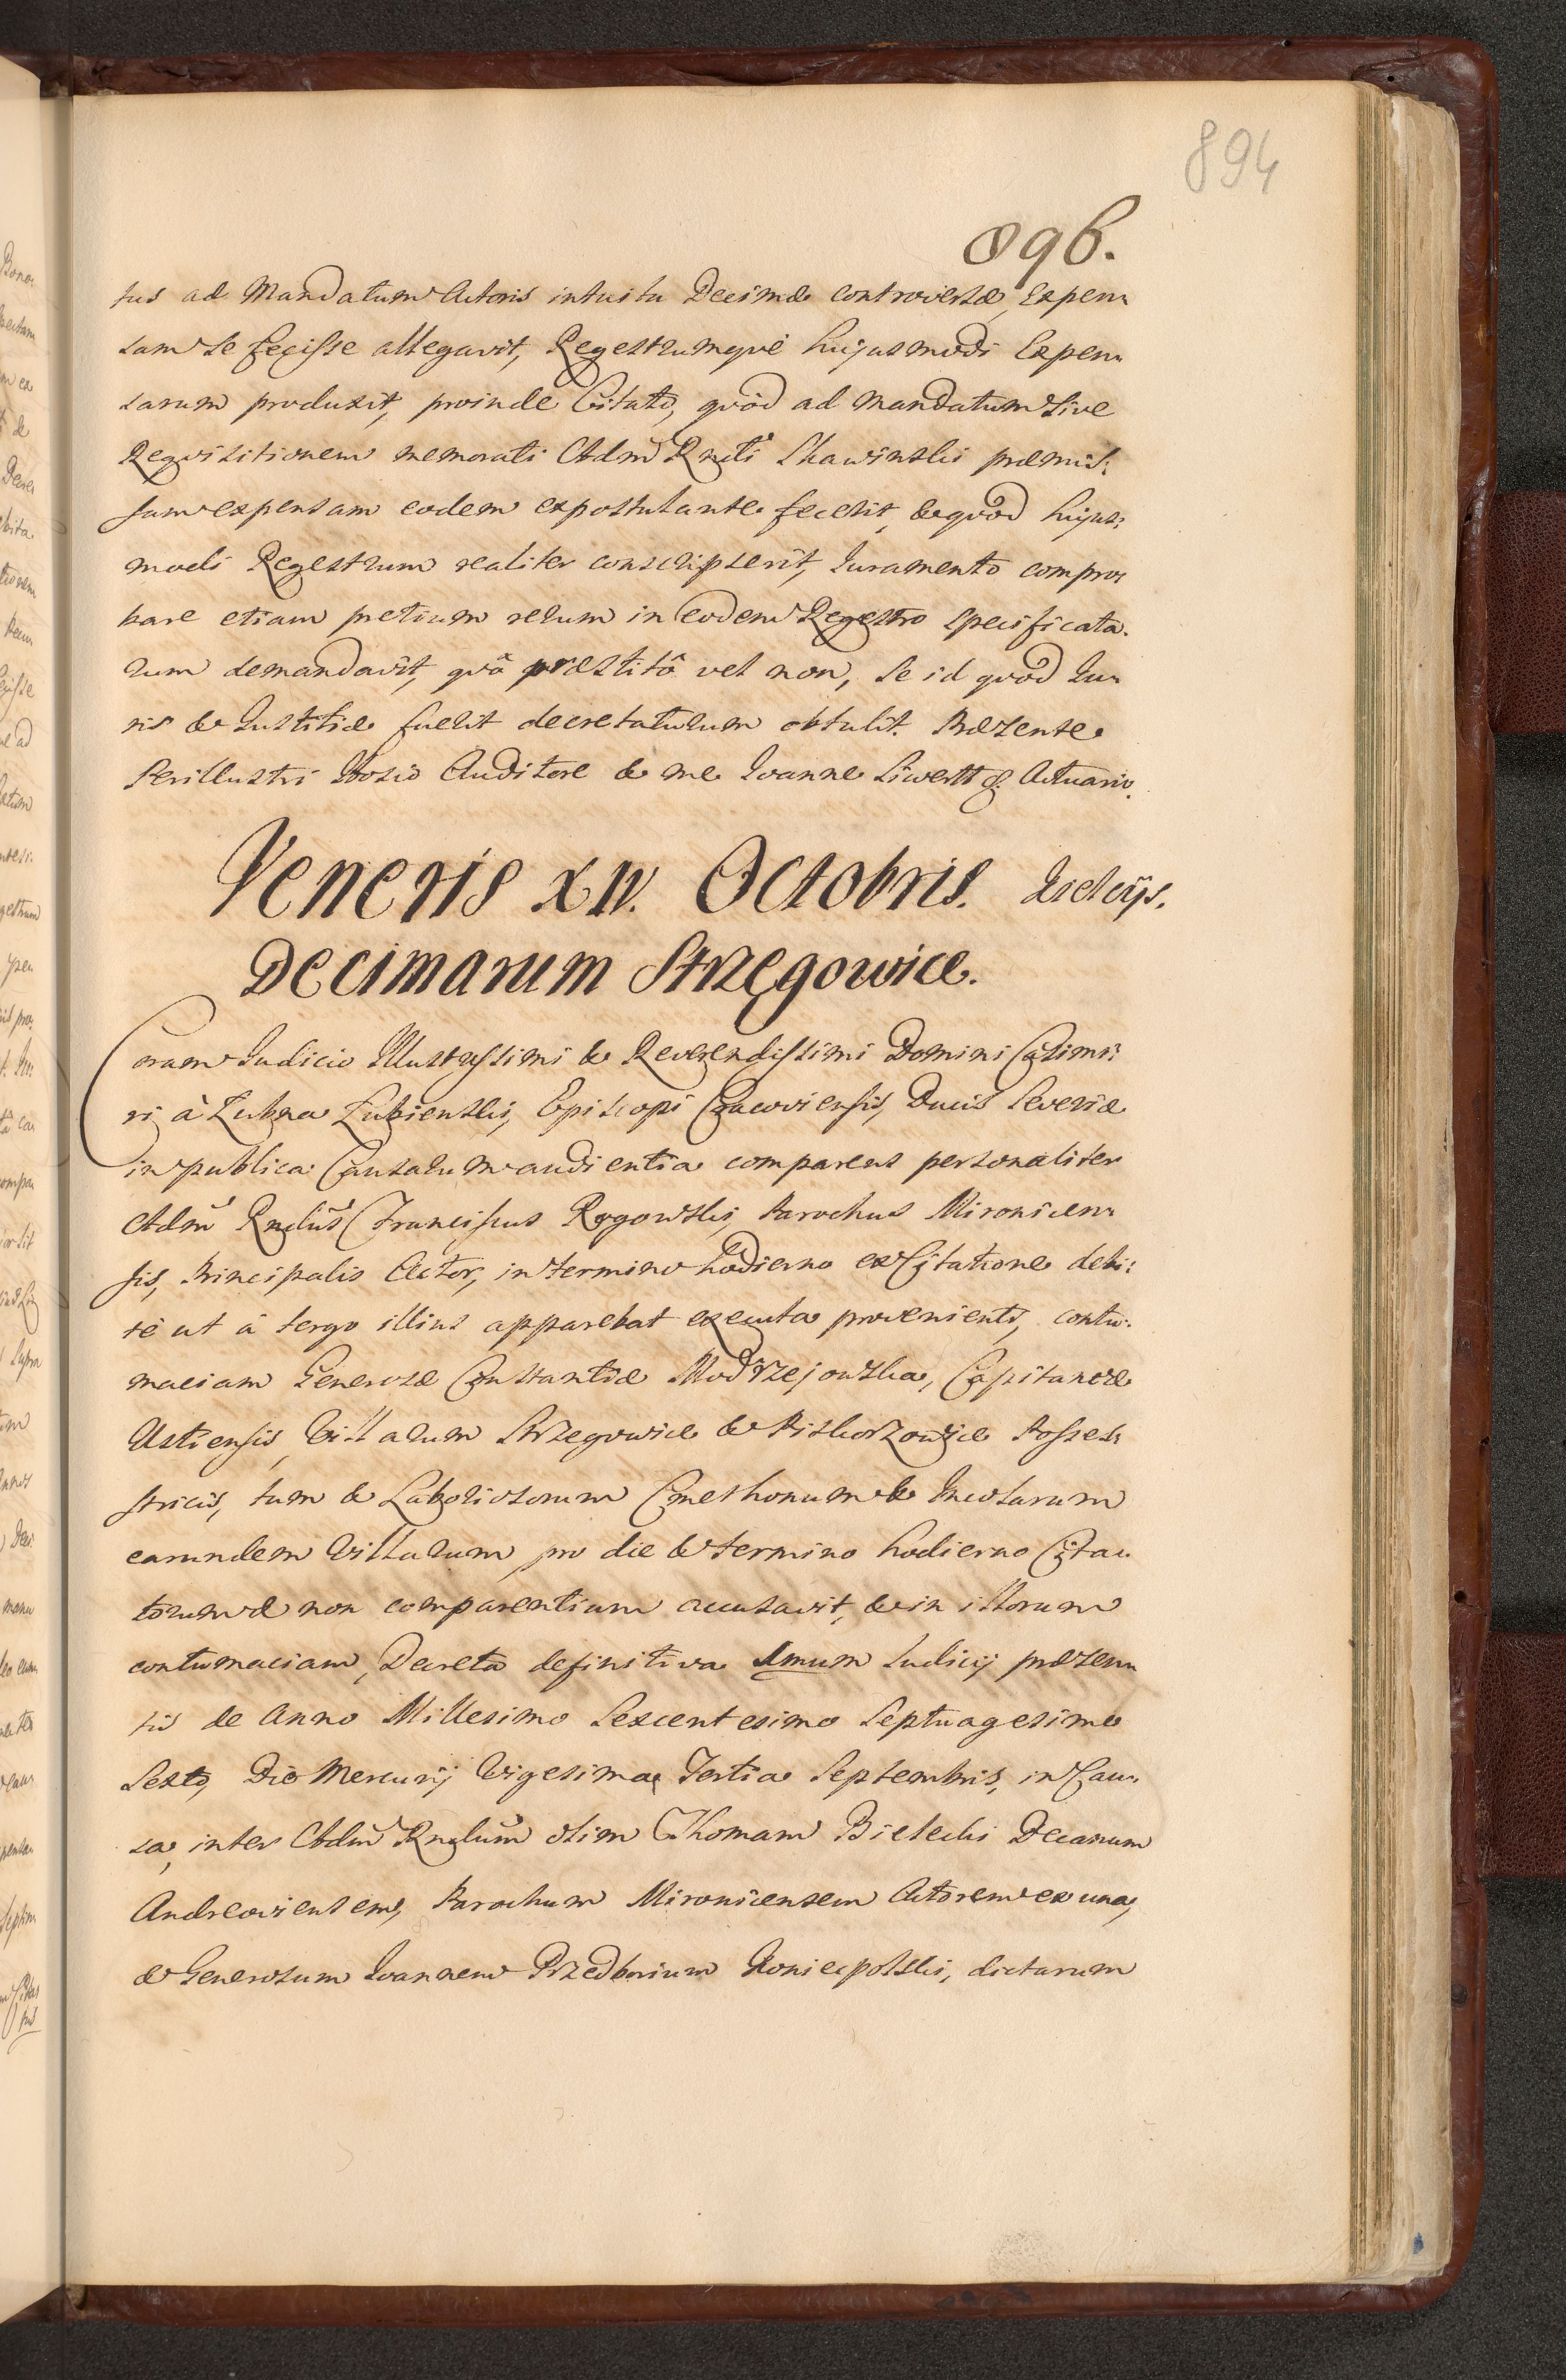 894
896.
tus ad Mandatum Actoris intuitu Decimæ controversæ, Expen-
sam se fecisse allegavit, Regestrumqve hujusmodi Expen-
sarum produxit, proinde Citato, qvòd ad Mandatum sive
Reqvisitionem memorati Adm̃ R̃ndi Skawinski præmis:
sam expensam eodem expostulante fecerit, & qvòd hujus:
modi Regestrum realiter conscripserit, Iuramento compro-
bare etiam pretium rerum in eodem Regestro specificata-
rum demandavit, qvô præstitô vel non, se id qvòd Iu-
ris & Iustitiæ fuerit decretaturum obtulit. Præsente
Perillustri Hosio Auditore & me Ioanne Siwertt &. Actuario.
Veneris XIV. Octobris. Kielcijs.
Decimarum Strzęgowice.
Coram Iudicio Illustrissimi & Reverendissimi Domini Casimi:
ri à Łubna Łubienski, Episcopi Cracoviensis, Ducis Severiæ
in publica Causarum audientia comparens personaliter
Adm̃ R̃ndus Franciscus Rogowski, Parochus Mironicen-
sis, Principalis Actor, in termino hodierno ex Citatione debi:
tè ut à tergo illius apparebat executa provenienti, contu-
maciam Generosæ Constantiæ Modrzejowska, Capitaneæ
Ustiensis, Villarum Strzegowice & Piskorzowice Posses:
stricis, tum & Laboriosorum Cmethonum & Incolarum
earundem Villarum, pro die & termino hodierno Cita-
torum & non comparentium accusavit, & in illorum
contumaciam, Decreta definitiva Imum Iudicij præsen-
tis de Anno Millesimo Sexcentesimo Septuagesimo
Sexto, Die Mercurij Vigesima Tertia Septembris, in Cau-
sa, inter Adm̃ R̃ndum olim Thomam Bielecki Decanum
Andreoviensem, Parochum Mironicensem Actorem ex una,
& Generosum Ioannem Przedborium Koniecpolski, dictarum